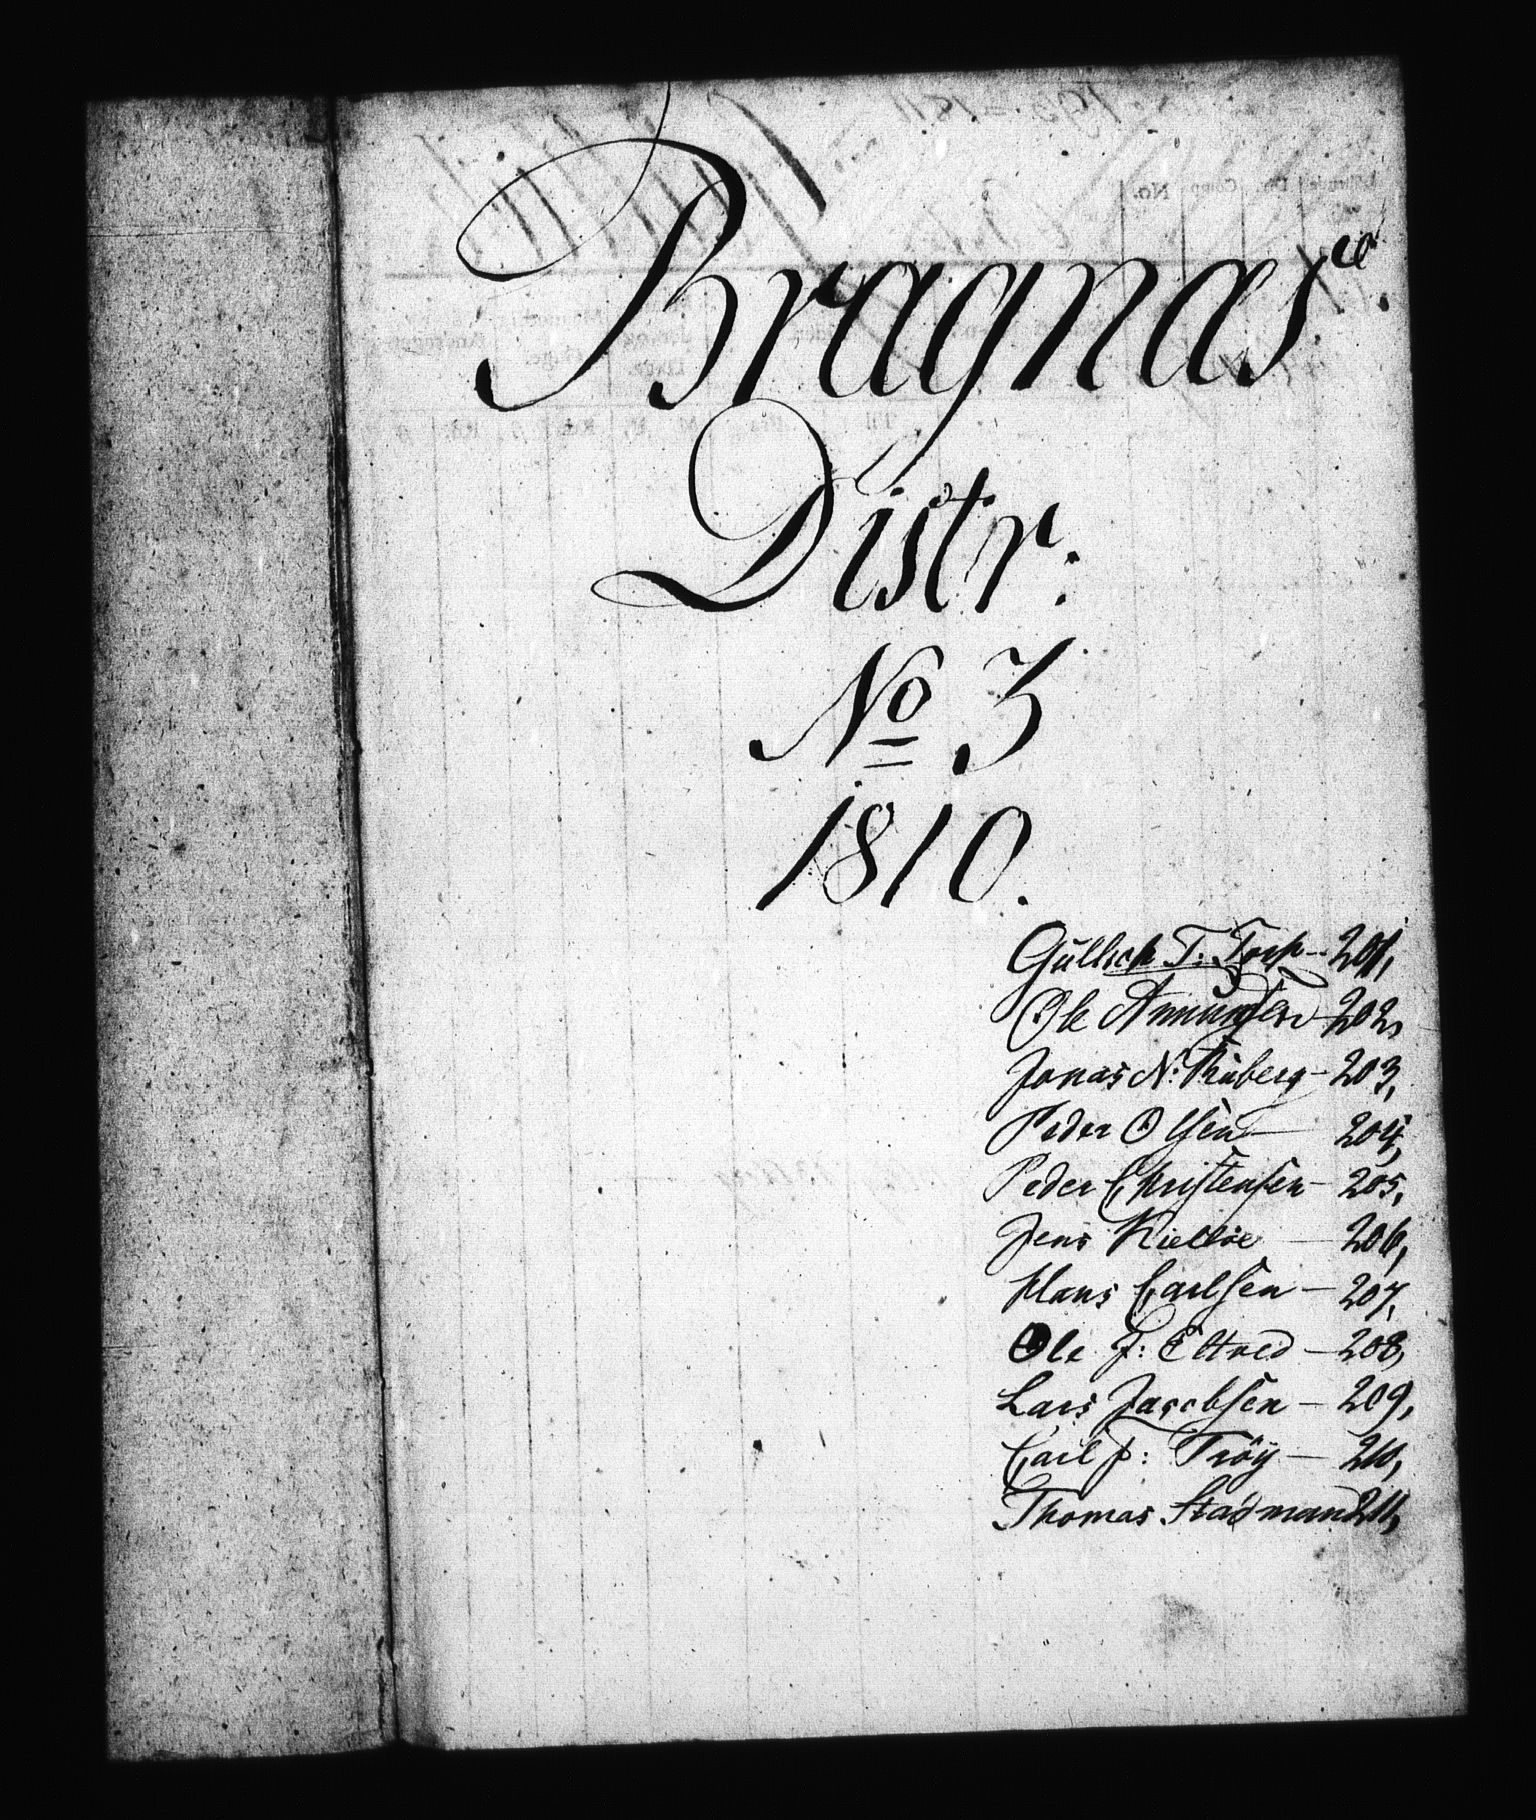 Bragnæs
Distr:
No 3
1810.
Gullich T: Torp - 201,
Ole Amundsen 202,
Jonas N: Thüberg - 203,
Peder Olsen - 204,
Peder Christensen - 205,
Jens Kielsøe - 206,
Hans Carlsen - 207,
Ole J: Eltved - 208,
Lars Jacobsen - 209,
Carl J: Tröÿ - 210,
Thomas Stadmand 211,